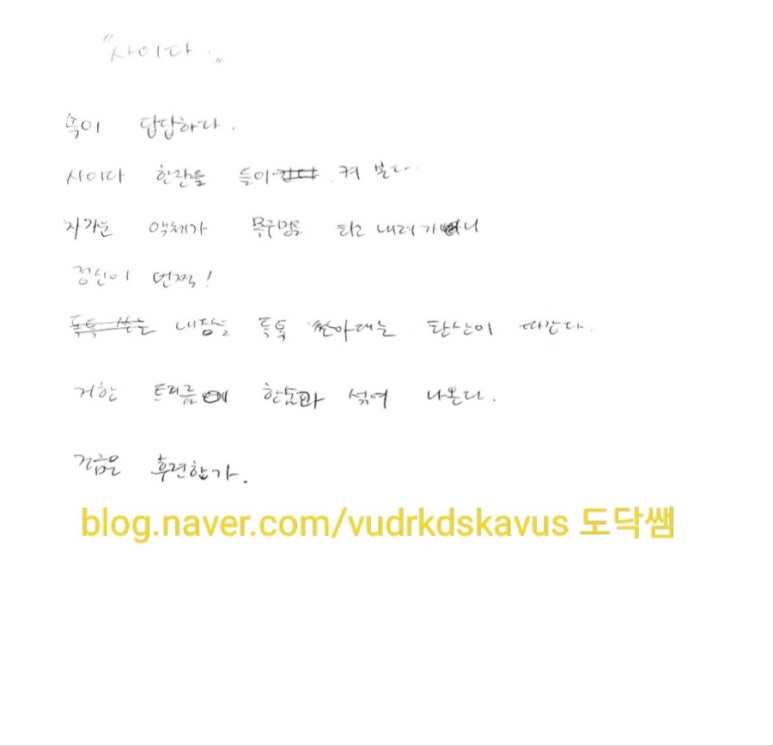 "사이다."
속이 답답하다.
사이다 한잔을 들이 켜 본다.
차가운 액체가 목구멍을 타고 내려가니
정신이 번쩍!
톡톡 쏘는 내장을 톡톡 쏘아대는 탄산이 따갑다.
거한 트림이 한숨과 섞여 나온다.
조금은 후련한가.
blog.naver.com/vudrkdskavus 도닥쌤